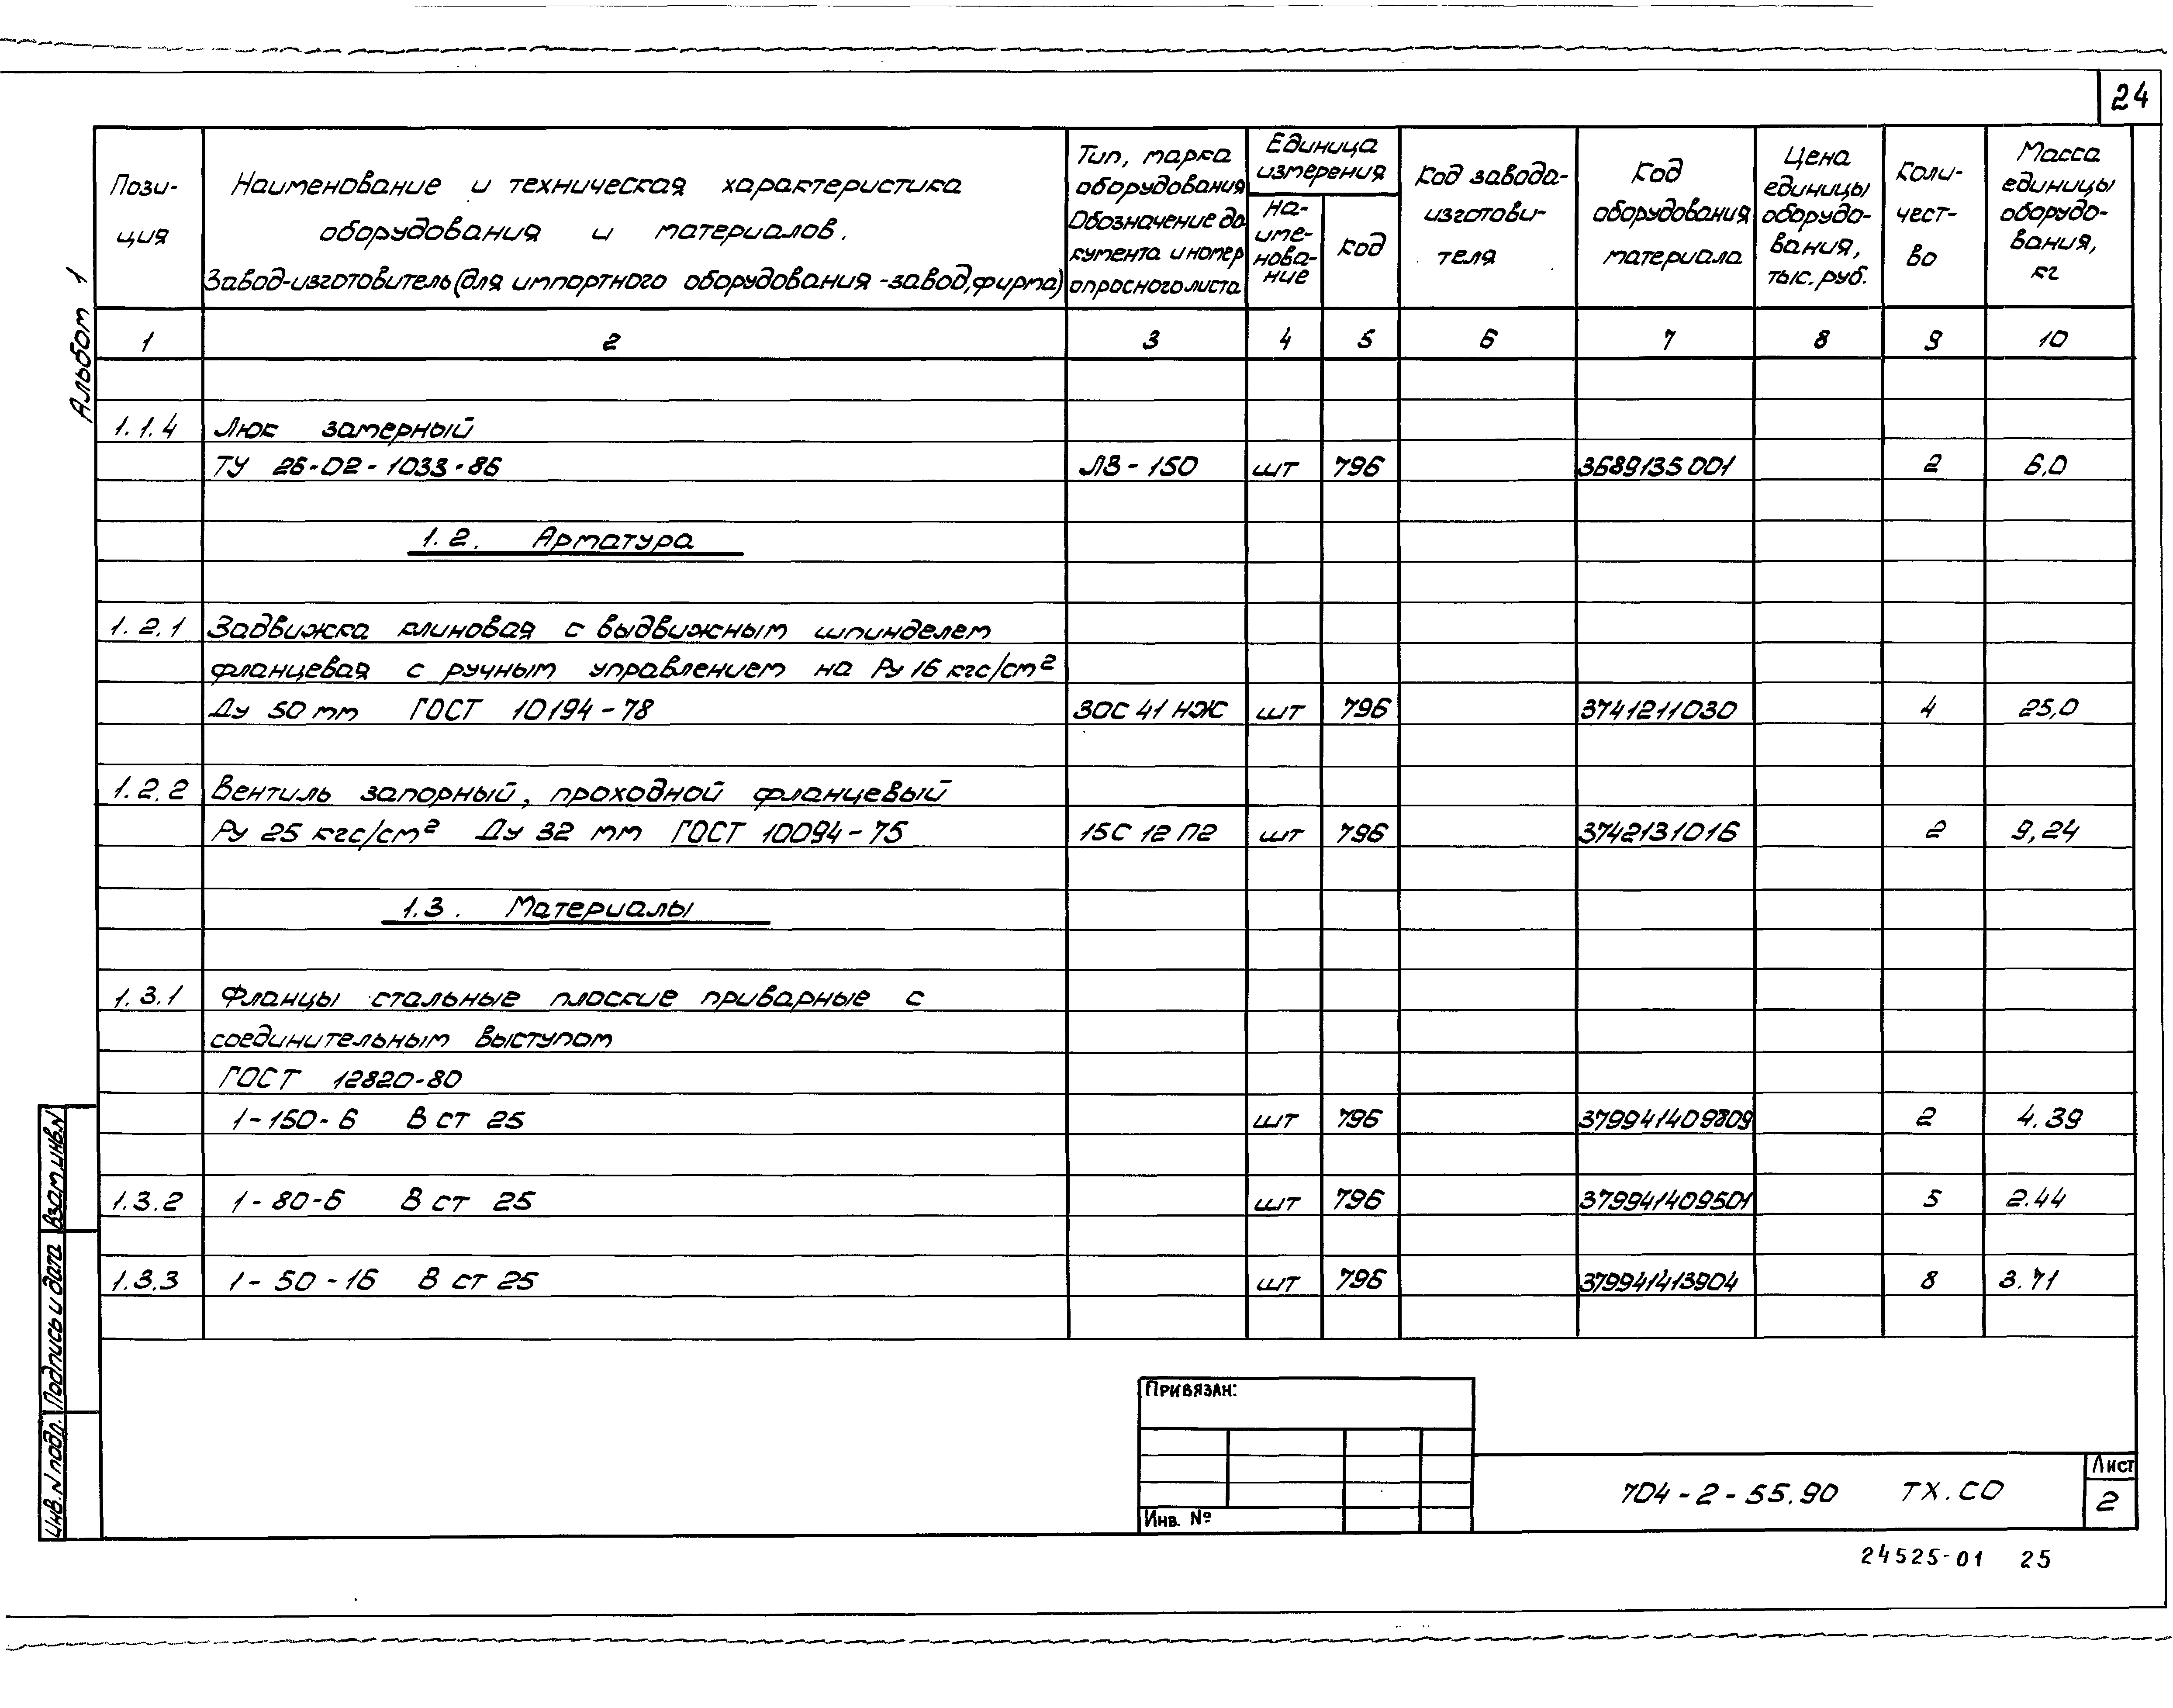 24
Альбом 1
Пози-
ция
Наименование и техническая характеристика
оборудования и материалов.
Завод-изготовитель (для импортного оборудования - завод, фирма)
Тип, марка
оборудования
Обозначение до
кумента и номер
опросного листа
Единица
измерения
На-
име-
нова-
ние
Код
Код завода-
изготови-
теля
Код
оборудования
материала
Цена
единицы
оборудо-
вания,
тыс. руб.
Коли-
чест-
во
Масса
единицы
оборудо-
вания,
кг
1 2 3 4 5 6 7 8 9 10
1.1.4 Люк замерный
ТУ 26-02-1033-86 ЛЗ-150 шт 796 3689135001 2 6,0
1.2. Арматура
1.2.1 Задвижка клиновая с выдвижным шпинделем
фланцевая с ручным управлением на Ру 16 кгс/см²
Ду 50 мм ГОСТ 10194-78 30С 41 НЖ шт 796 3741211030 4 25,0
1.2.2 Вентиль запорный, проходной фланцевый
Ру 25 кгс/см² Ду 32 мм ГОСТ 10094-75 15С 12 П2 шт 796 3742131016 2 9,24
1.3. Материалы
1.3.1 Фланцы стальные плоские приварные с
соединительным выступом
ГОСТ 12820-80
1-150-6 В ст 25 шт 796 379941409809 2 4.39
1.3.2 1-80-6 В ст 25 шт 796 379941409501 5 2.44
1.3.3 1-50-16 В ст 25 шт 796 379941413904 8 3.71
Взам. инв. N
Подпись и дата
Инв. N подл.
Привязан:
Инв. №
704-2-55.90 ТХ.СО
Лист
2
24525-01 25